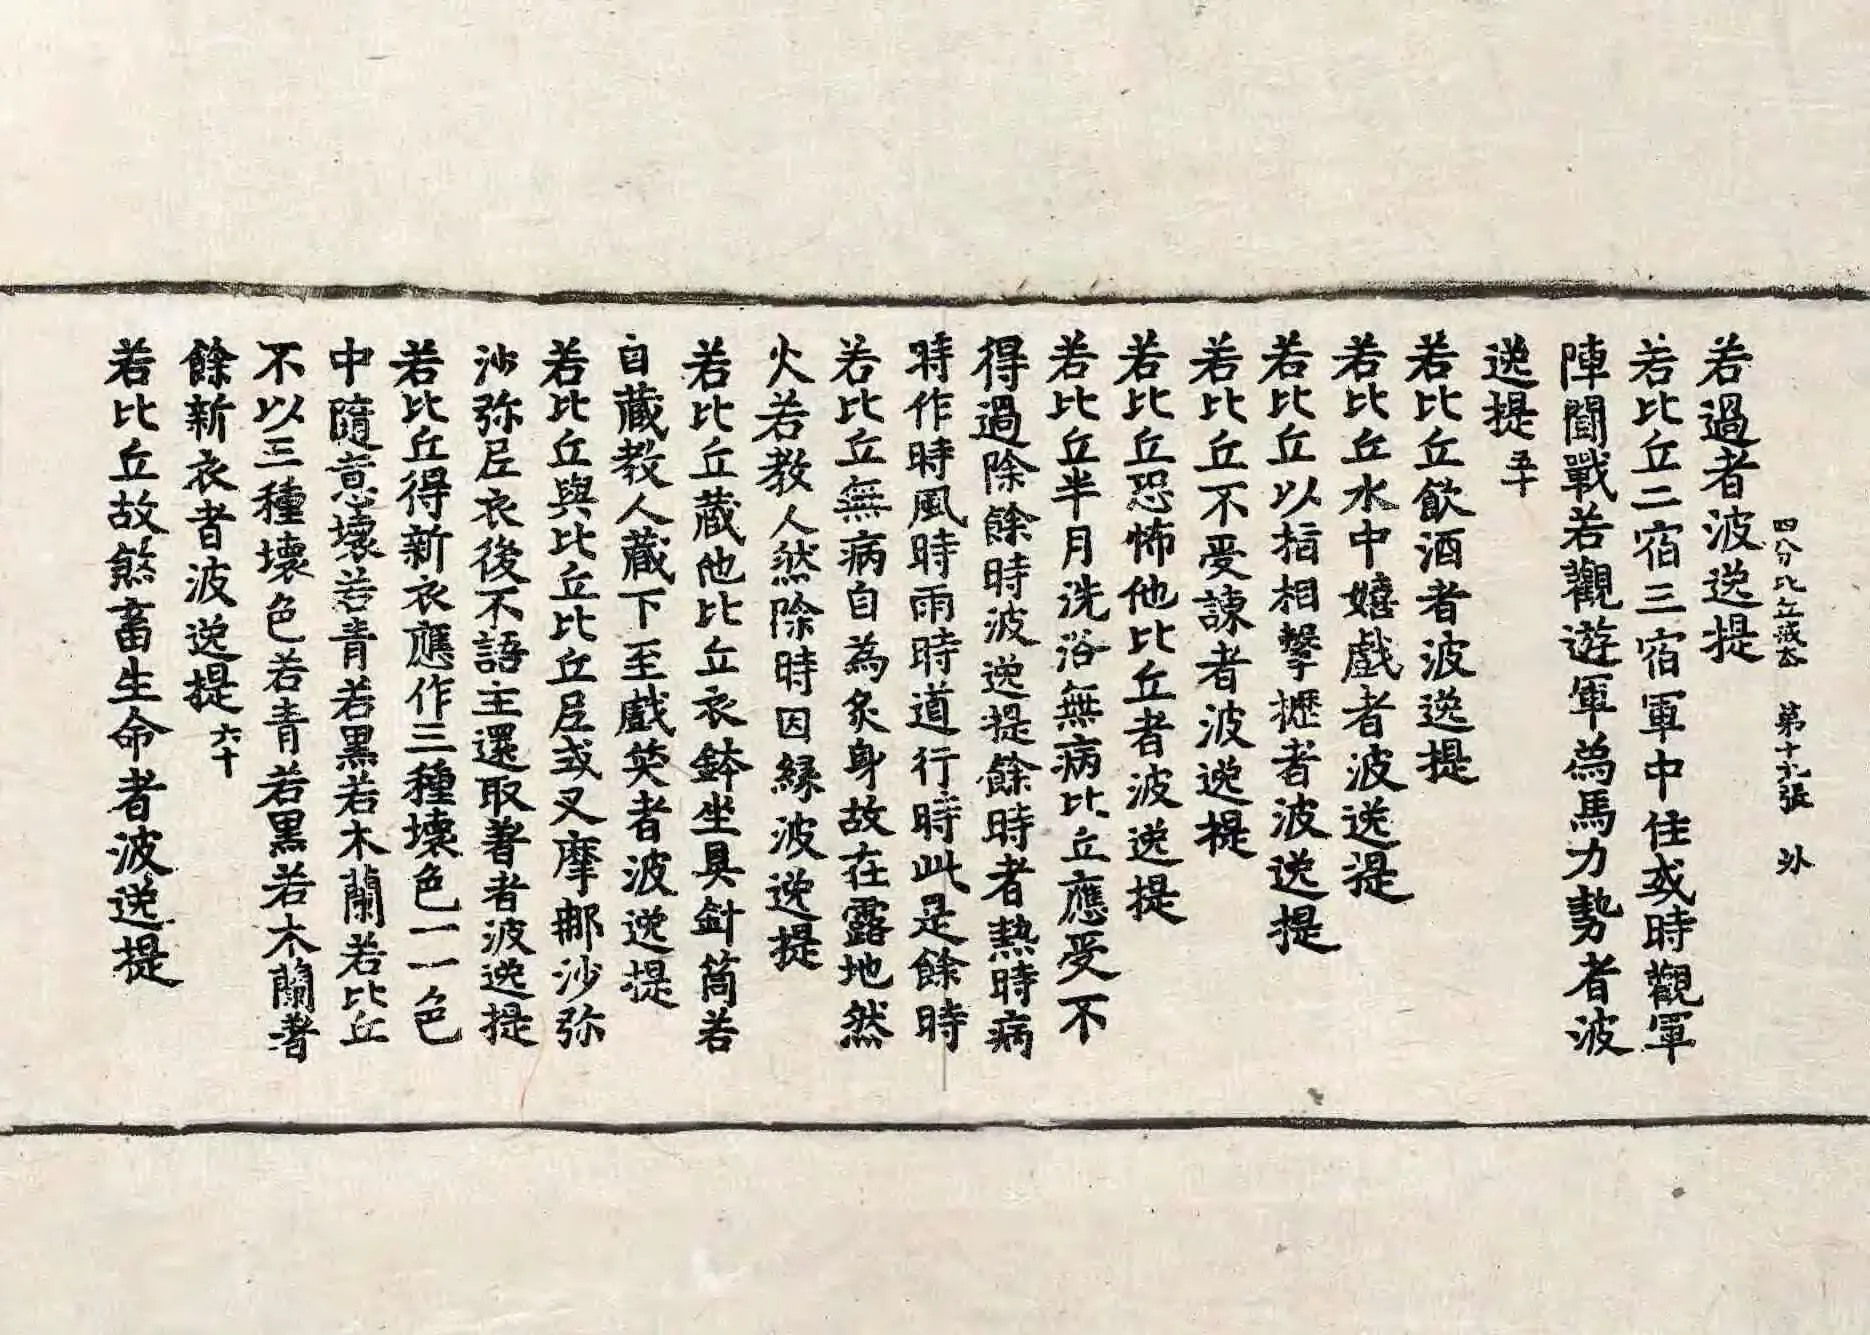 四分比丘戒本　第十九張　外
若過者波逸提
若比丘二宿三宿軍中住或時觀軍
陣鬪戰若觀遊軍為馬力勢者波
逸提五十
若比丘飲酒者波逸提
若比丘水中嬉戲者波逸提
若比丘以指相擊攊者波逸提
若比丘不受諫者波逸提
若比丘恐怖他比丘者波逸提
若比丘半月洗浴無病比丘應受不
得過除餘時波逸提餘時者熱時病
時作時風時雨時道行時此是餘時
若比丘無病自為炙身故在露地然
火若教人然除時因緣波逸提
若比丘藏他比丘衣鉢坐具針筒若
自藏教人藏下至戲笑者波逸提
若比丘與比丘比丘尼或叉摩那沙弥
沙弥尼衣後不語主還取著者波逸提
若比丘得新衣應作三種壞色一一色
中隨意壞若青若黑若木蘭若比丘
不以三種壞色若青若黑若木蘭著
餘新衣者波逸提六十
若比丘故煞畜生命者波逸提